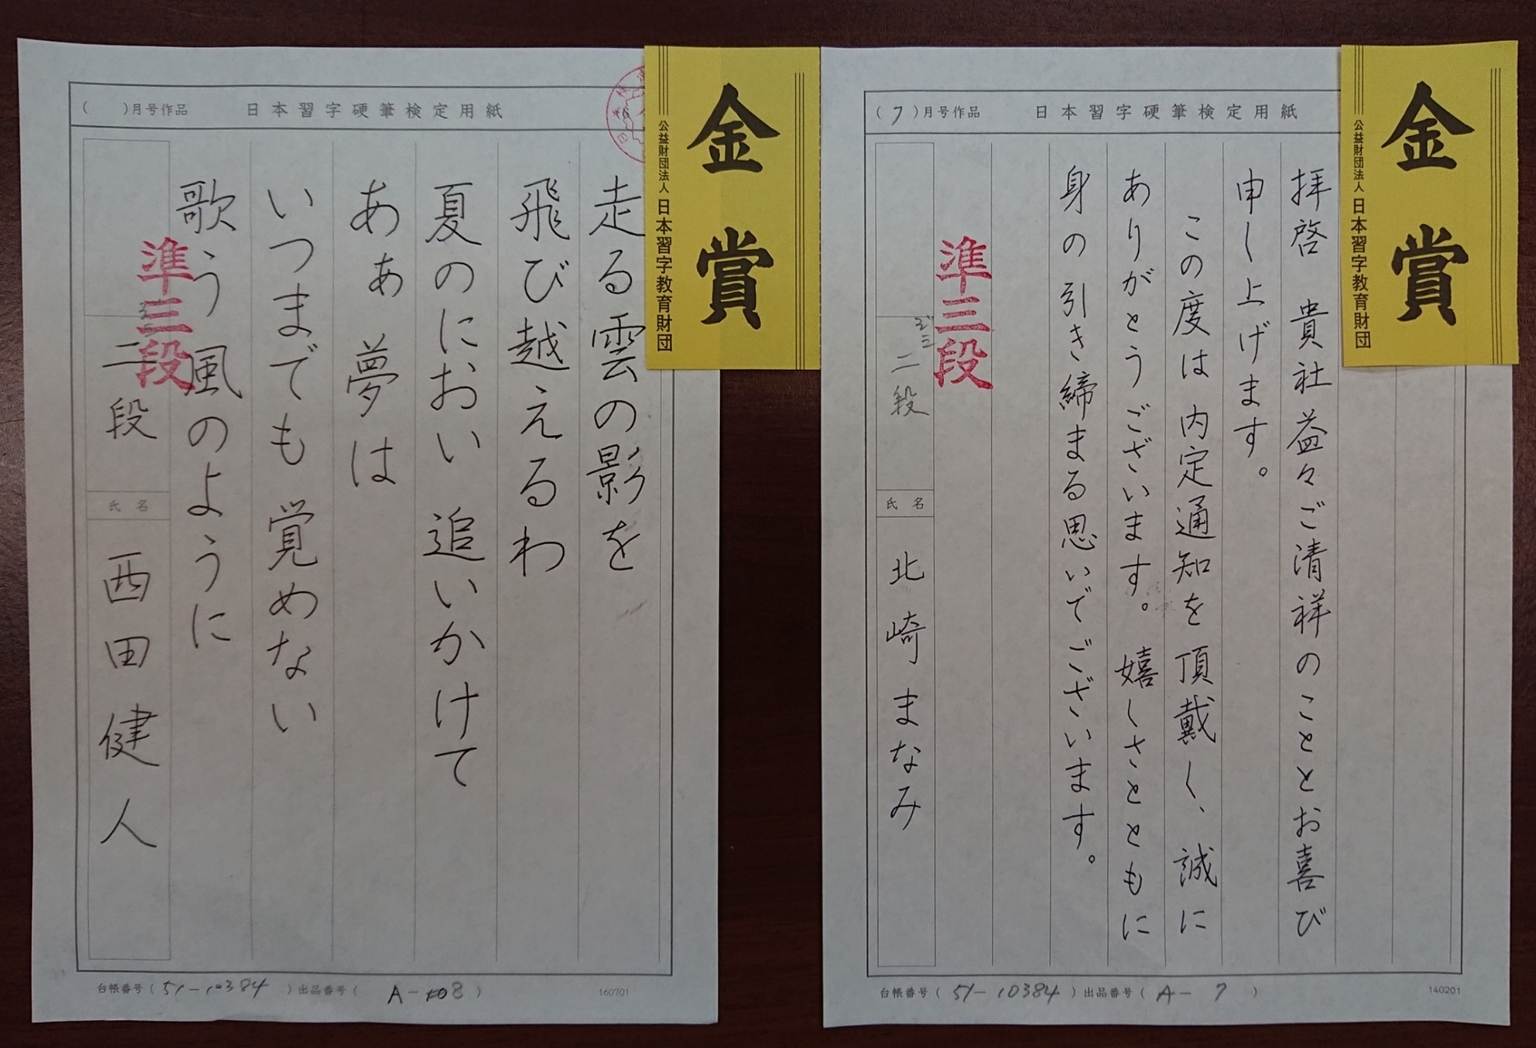 ( )月号作品
日本習字硬筆検定用紙
金賞
公益財団法人 日本習字教育財団
走る雲の影を
飛び越えるわ
夏のにおい 追いかけて
あぁ 夢は
いつまでも 覚めない
歌う風のように
準三段
二段
氏名
西田健人
台帳番号( 51-10384 )出品番号( A- 8 )
160701
(7)月号作品
日本習字硬筆検定用紙
金賞
公益財団法人 日本習字教育財団
拝啓 貴社益々ご清祥のこととお喜び
申し上げます。
この度は 内定通知を 頂戴し、誠に
ありがとうございます。嬉しさとともに
身の引き締まる思いでございます。
準三段
二段
氏名
北崎まなみ
台帳番号( 51-10384 )出品番号( A- 7 )
140201